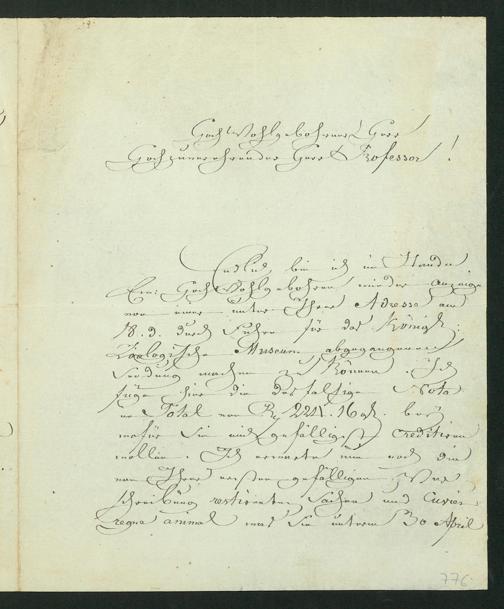 HochWohlgebohrner Herr
Hochzuverehrender Herr Professor!
Endlich bin ich im Stande
Euer HochWohlgebohren wieder Anzeige
von einer unter Ihrer Adresse am
18. d. durch Fuhre für das Königl:
Zoologische Museum abgegangenen
Sendung machen zu können. Ich
füge hier die desfallsige Nota
im Total von 16 bei
wofür Sie mich gefälligst creditiren
wollen. Ich erwarte nun noch die
von Ihnen gefälligen
restirenden Sachen und Cuvier
regne animal was Sie unterm 30 April
776